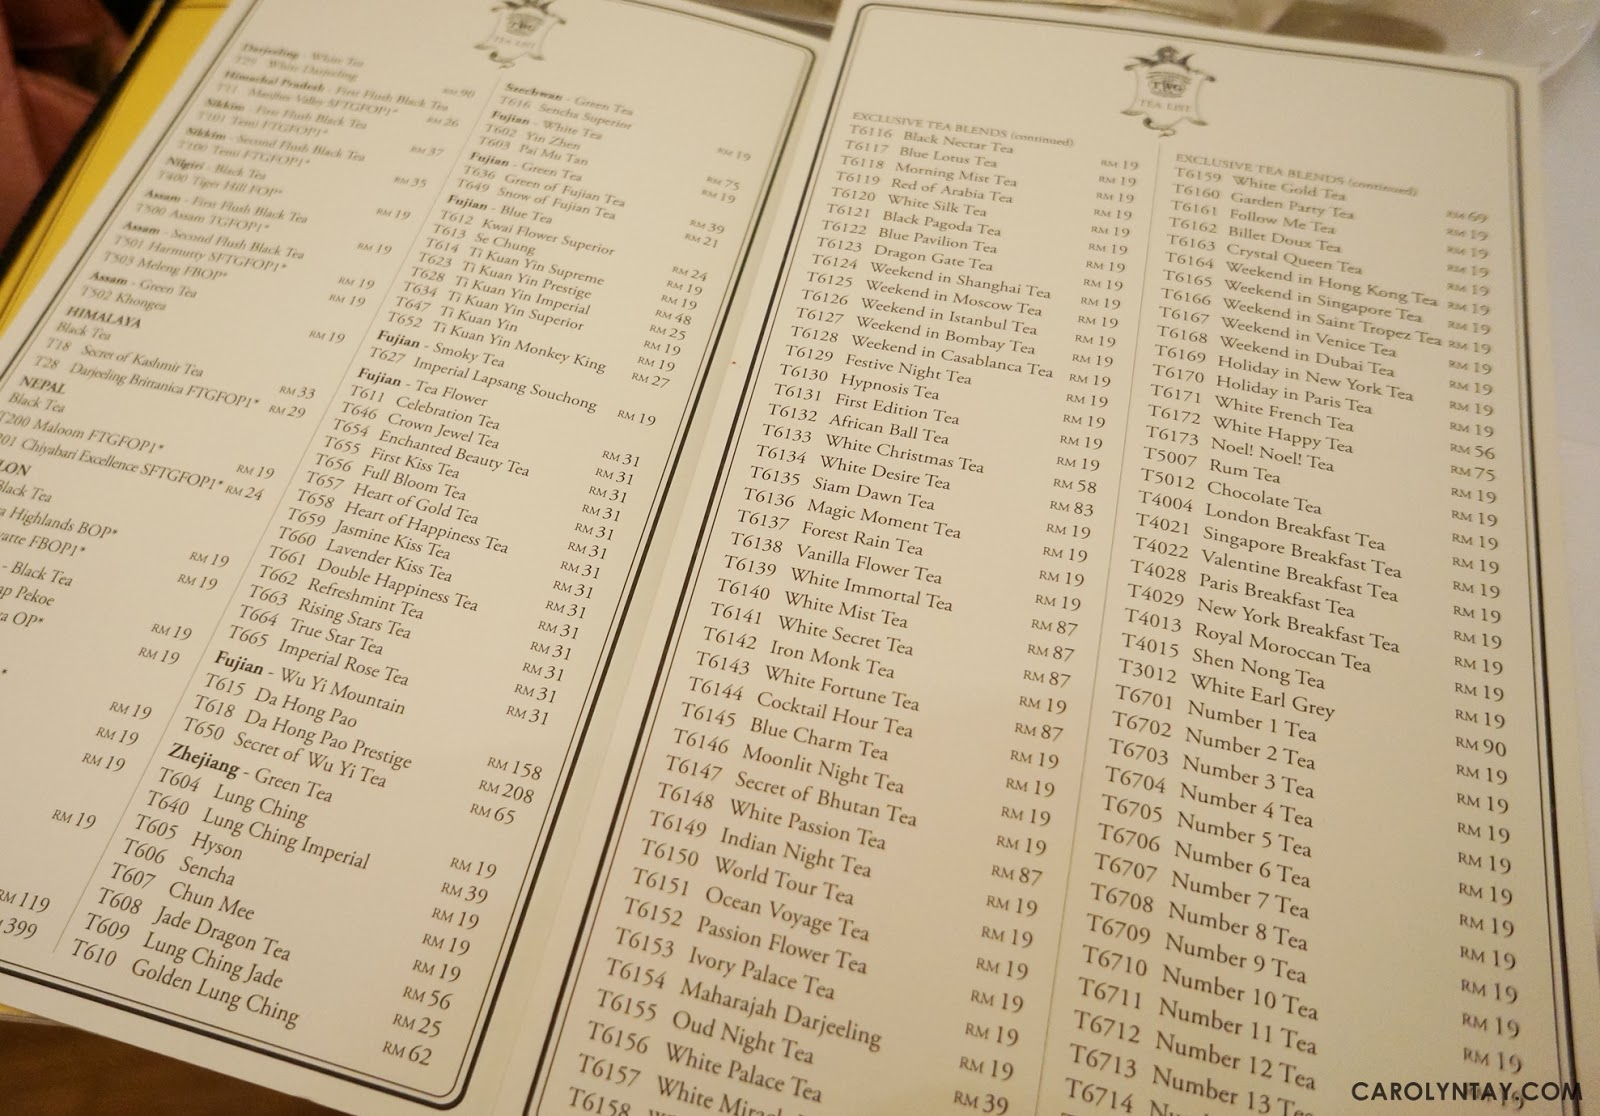 TWG
TEA LIST
Darjeeling - White Tea
T29 White Darjeeling RM 90
Himachal Pradesh - First Flush Black Tea
T11 Manjher Valley SFTGFOP1* RM 26
Sikkim - First Flush Black Tea
T101 Temi FTGFOP1* RM 37
Sikkim - Second Flush Black Tea
T100 Temi FTGFOP1* RM 35
Nilgiri - Black Tea
T400 Tiger Hill FOP* RM 19
Assam - First Flush Black Tea
T500 Assam TGFOP1* RM 19
Assam - Second Flush Black Tea
T501 Harmutty SFTGFOP1* RM 19
T503 Meleng FBOP* RM 19
Assam - Green Tea
T502 Khongea RM 19
HIMALAYA
Black Tea
T18 Secret of Kashmir Tea RM 33
T28 Darjeeling Brittanica FTGFOP1* RM 29
NEPAL
Black Tea
T200 Maloom FTGFOP1* RM 19
201 Chiyabari Excellence SFTGFOP1* RM 24
LON
Black Tea
a Highlands BOP* RM 19
atte FBOP1* RM 19
- Black Tea
ap Pekoe RM 19
a OP* RM 19
RM 19
RM 19
RM 19
RM 19
RM 119
399
Szechwan - Green Tea
T616 Sencha Superior RM 19
Fujian - White Tea
T602 Yin Zhen RM 75
T603 Pai Mu Tan RM 19
Fujian - Green Tea
T636 Green of Fujian Tea RM 39
T649 Snow of Fujian Tea RM 21
Fujian - Blue Tea
T612 Kwai Flower Superior RM 24
T613 Se Chung RM 19
T614 Ti Kuan Yin Supreme RM 19
T623 Ti Kuan Yin Prestige RM 48
T628 Ti Kuan Yin Imperial RM 25
T634 Ti Kuan Yin Superior RM 19
T647 Ti Kuan Yin RM 19
T652 Ti Kuan Yin Monkey King RM 27
Fujian - Smoky Tea
T627 Imperial Lapsang Souchong RM 19
Fujian - Tea Flower
T611 Celebration Tea RM 31
T646 Crown Jewel Tea RM 31
T654 Enchanted Beauty Tea RM 31
T655 First Kiss Tea RM 31
T656 Full Bloom Tea RM 31
T657 Heart of Gold Tea RM 31
T658 Heart of Happiness Tea RM 31
T659 Jasmine Kiss Tea RM 31
T660 Lavender Kiss Tea RM 31
T661 Double Happiness Tea RM 31
T662 Refreshmint Tea RM 31
T663 Rising Stars Tea RM 31
T664 True Star Tea RM 31
T665 Imperial Rose Tea RM 31
Fujian - Wu Yi Mountain
T615 Da Hong Pao RM 158
T618 Da Hong Pao Prestige RM 208
T650 Secret of Wu Yi Tea RM 65
Zhejiang - Green Tea
T604 Lung Ching RM 19
T640 Lung Ching Imperial RM 39
T605 Hyson RM 19
T606 Sencha RM 19
T607 Chun Mee RM 19
T608 Jade Dragon Tea RM 56
T609 Lung Ching Jade RM 25
T610 Golden Lung Ching RM 62
TWG
TEA LIST
EXCLUSIVE TEA BLENDS (continued)
T6116 Black Nectar Tea RM 19
T6117 Blue Lotus Tea RM 19
T6118 Morning Mist Tea RM 19
T6119 Red of Arabia Tea RM 19
T6120 White Silk Tea RM 19
T6121 Black Pagoda Tea RM 19
T6122 Blue Pavilion Tea RM 19
T6123 Dragon Gate Tea RM 19
T6124 Weekend in Shanghai Tea RM 19
T6125 Weekend in Moscow Tea RM 19
T6126 Weekend in Istanbul Tea RM 19
T6127 Weekend in Bombay Tea RM 19
T6128 Weekend in Casablanca Tea RM 19
T6129 Festive Night Tea RM 19
T6130 Hypnosis Tea RM 19
T6131 First Edition Tea RM 19
T6132 African Ball Tea RM 19
T6133 White Christmas Tea RM 58
T6134 White Desire Tea RM 83
T6135 Siam Dawn Tea RM 19
T6136 Magic Moment Tea RM 19
T6137 Forest Rain Tea RM 19
T6138 Vanilla Flower Tea RM 19
T6139 White Immortal Tea RM 87
T6140 White Mist Tea RM 87
T6141 White Secret Tea RM 87
T6142 Iron Monk Tea RM 19
T6143 White Fortune Tea RM 87
T6144 Cocktail Hour Tea RM 19
T6145 Blue Charm Tea RM 19
T6146 Moonlit Night Tea RM 19
T6147 Secret of Bhutan Tea RM 19
T6148 White Passion Tea RM 87
T6149 Indian Night Tea RM 19
T6150 World Tour Tea RM 19
T6151 Ocean Voyage Tea RM 19
T6152 Passion Flower Tea RM 19
T6153 Ivory Palace Tea RM 19
T6154 Maharajah Darjeeling RM 19
T6155 Oud Night Tea RM 39
T6156 White Palace Tea
T6157 White
T6158
EXCLUSIVE TEA BLENDS (continued)
T6159 White Gold Tea RM 69
T6160 Garden Party Tea RM 19
T6161 Follow Me Tea RM 19
T6162 Billet Doux Tea RM 19
T6163 Crystal Queen Tea RM 19
T6164 Weekend in Hong Kong Tea RM 19
T6165 Weekend in Singapore Tea RM 19
T6166 Weekend in Saint Tropez Tea RM 19
T6167 Weekend in Venice Tea RM 19
T6168 Weekend in Dubai Tea RM 19
T6169 Holiday in New York Tea RM 19
T6170 Holiday in Paris Tea RM 19
T6171 White French Tea RM 56
T6172 White Happy Tea RM 75
T6173 Noel! Noel! Tea RM 19
T5007 Rum Tea RM 19
T5012 Chocolate Tea RM 19
T4004 London Breakfast Tea RM 19
T4021 Singapore Breakfast Tea RM 19
T4022 Valentine Breakfast Tea RM 19
T4028 Paris Breakfast Tea RM 19
T4029 New York Breakfast Tea RM 19
T4013 Royal Moroccan Tea RM 19
T4015 Shen Nong Tea RM 19
T3012 White Earl Grey RM 90
T6701 Number 1 Tea RM 19
T6702 Number 2 Tea RM 19
T6703 Number 3 Tea RM 19
T6704 Number 4 Tea RM 19
T6705 Number 5 Tea RM 19
T6706 Number 6 Tea RM 19
T6707 Number 7 Tea RM 19
T6708 Number 8 Tea RM 19
T6709 Number 9 Tea RM 19
T6710 Number 10 Tea RM 19
T6711 Number 11 Tea RM 19
T6712 Number 12 Tea
T6713 Number 13 Tea
T6714
CAROLYNTAY.COM